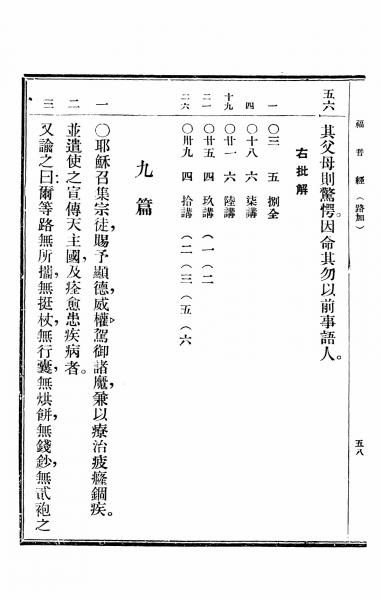 福音經（路加）
五八
五六 其父母則驚愕。因命其勿以前事語人。
右批解
一 〇三 五 捌全
四 〇十八 六 柒講
十九 〇廿一 六 陸講
二一 〇廿五 四 玖講（一（二
二六 〇卅九 四 拾講（二（三（五（六
九篇
一 〇耶穌召集宗徒，賜予顯德，威權駕御諸魔，兼以療治疲癃錮疾。
二 並遣使之宣傳天主國，及痊愈患疾病者。
三 又諭之曰，爾等路無所攜，無挺杖，無行囊，無烘餅，無錢鈔，無貳袍之